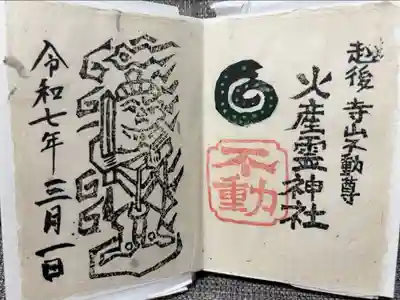 越後 寺山不動尊
火産霊神社
不動
令和七年 三月一日